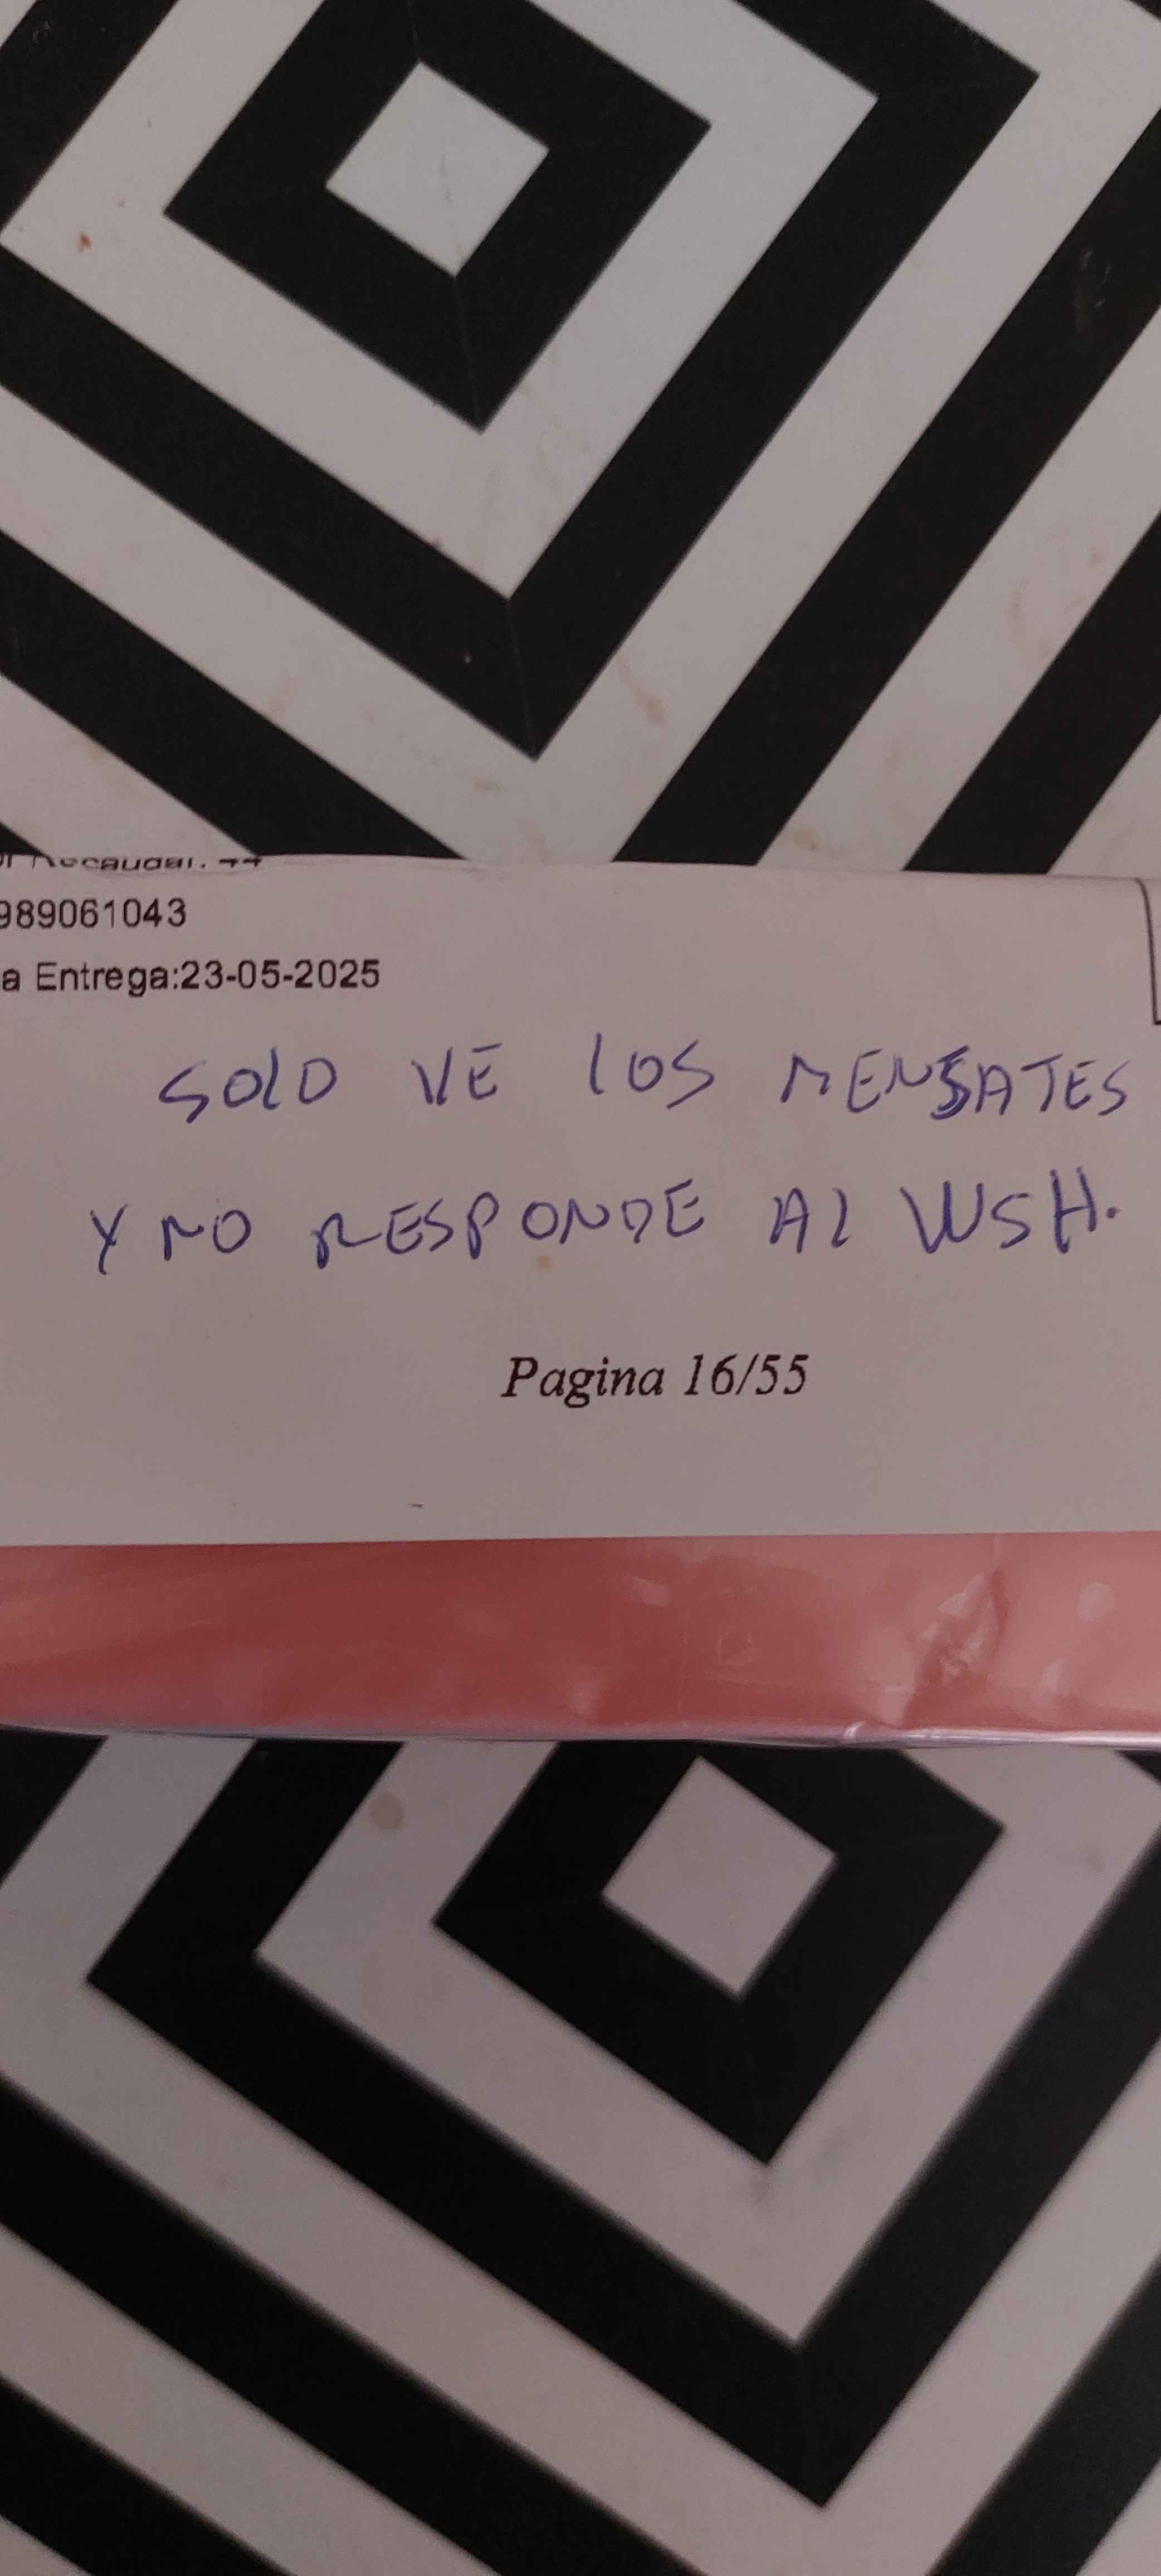 Recaudar: 44
989061043
a Entrega:23-05-2025
SOLO VE LOS MENSAJES
Y NO RESPONDE AL WSH.
Pagina 16/55